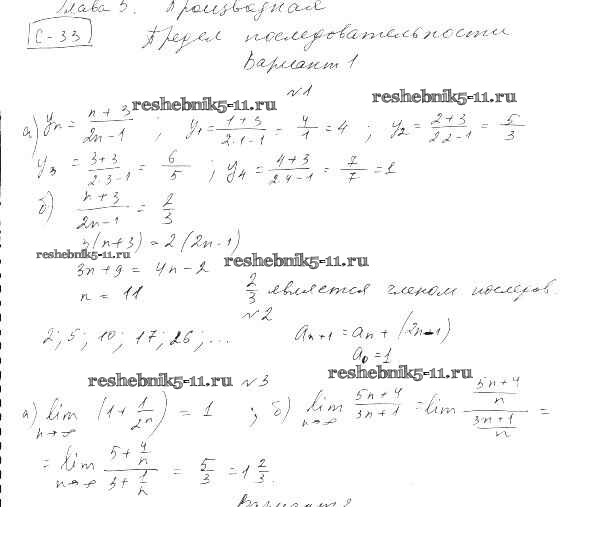 Глава 5. Производная
С-33 Предел последовательности
Вариант 1
№1
reshebnik5-11.ru reshebnik5-11.ru
а) yn = (n+3)/(2n-1) ; y1 = (1+3)/(2·1-1) = 4/1 = 4 ; y2 = (2+3)/(2·2-1) = 5/3
y3 = (3+3)/(2·3-1) = 6/5 ; y4 = (4+3)/(2·4-1) = 7/7 = 1
б) (n+3)/(2n-1) = 2/3
3(n+3) = 2(2n-1)
reshebnik5-11.ru reshebnik5-11.ru
3n+9 = 4n-2
n = 11 2/3 является членом последов.
№2
2; 5; 10; 17; 26; ... an+1 = an + (2n-1)
a0 = 1
reshebnik5-11.ru №3 reshebnik5-11.ru
а) lim n→∞ (1 + 1/2ⁿ) = 1 ; б) lim n→∞ (5n+4)/(3n+1) = lim ((5n+4)/n)/((3n+1)/n) =
= lim n→∞ (5+4/n)/(3+1/n) = 5/3 = 1 2/3.